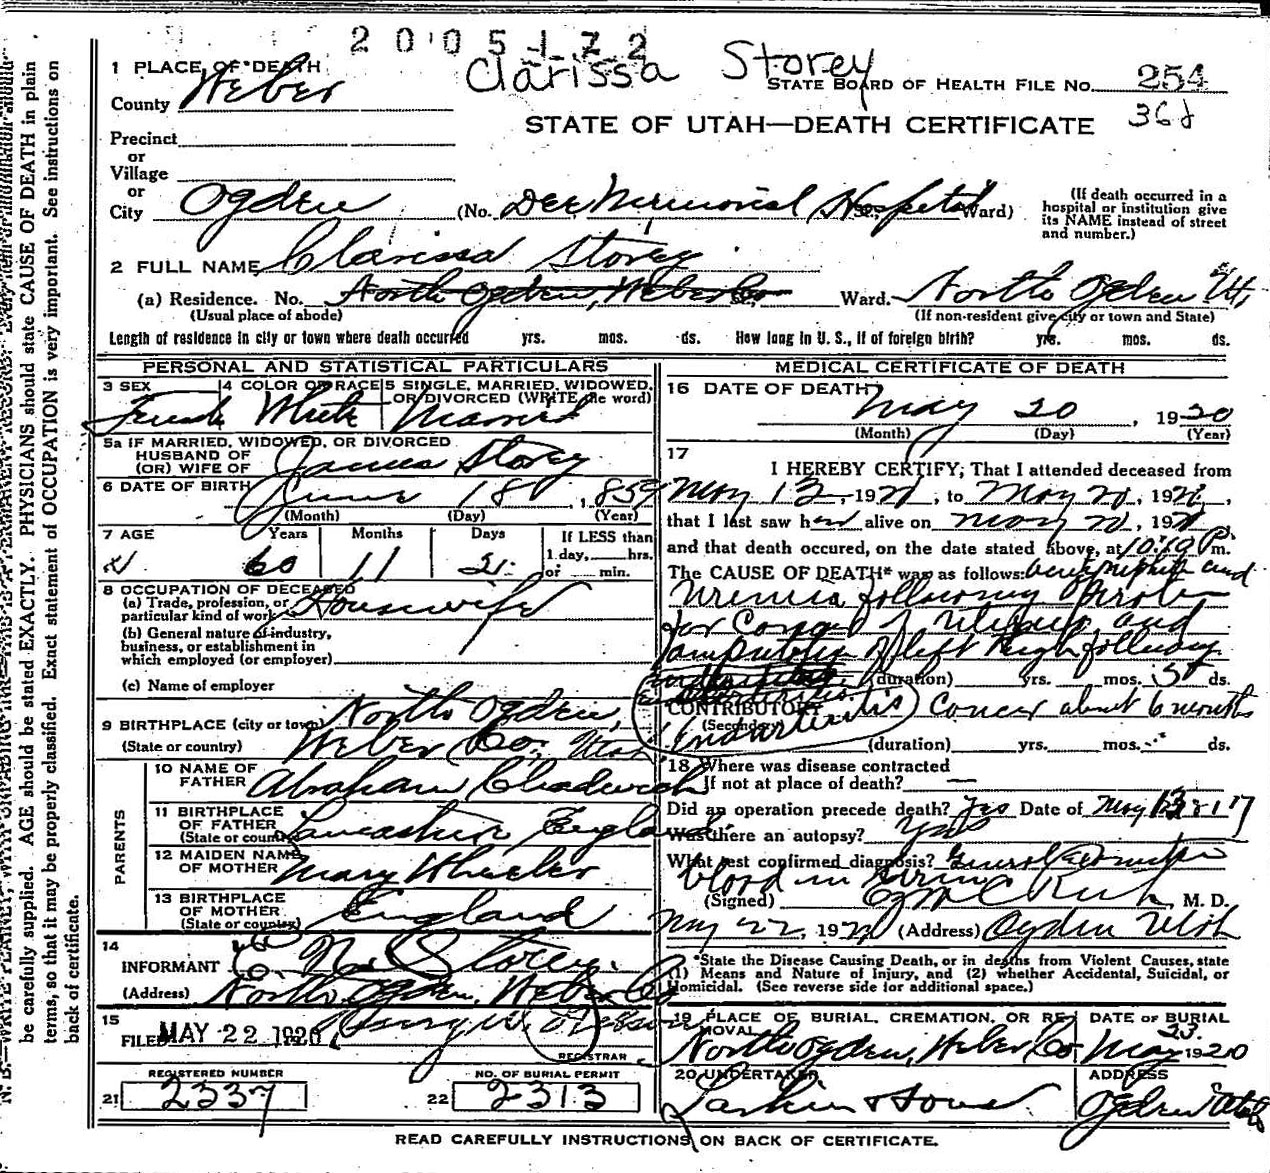 2005172
Clarissa Storey
1 PLACE OF DEATH
County Weber
STATE BOARD OF HEALTH FILE No. 254
STATE OF UTAH—DEATH CERTIFICATE
Precinct
or
Village
or
City Ogden (No. Dee Memorial Hospital St. Ward)
(If death occurred in a hospital or institution give its NAME instead of street and number.)
2 FULL NAME Clarissa Storey
(a) Residence. No. North Ogden, Weber Co St. Ward. North Ogden Ut.
(Usual place of abode) (If non-resident give city or town and State)
Length of residence in city or town where death occurred yrs. mos. ds. How long in U. S., if of foreign birth? yrs. mos. ds.
PERSONAL AND STATISTICAL PARTICULARS
3 SEX 4 COLOR OR RACE 5 SINGLE, MARRIED, WIDOWED, OR DIVORCED (WRITE the word)
Female White Married
5a IF MARRIED, WIDOWED, OR DIVORCED
HUSBAND OF
(OR) WIFE OF James Storey
6 DATE OF BIRTH June 18, 1859
(Month) (Day) (Year)
7 AGE Years Months Days If LESS than
60 11 2 1 day, hrs.
or min.
8 OCCUPATION OF DECEASED
(a) Trade, profession, or
particular kind of work Housewife
(b) General nature of industry,
business, or establishment in
which employed (or employer)
(c) Name of employer
9 BIRTHPLACE (city or town) North Ogden,
(State or country) Weber Co. Utah
PARENTS
10 NAME OF
FATHER Abraham Chadwick
11 BIRTHPLACE
OF FATHER
(State or country) Lancashire England
12 MAIDEN NAME
OF MOTHER Mary Wheeler
13 BIRTHPLACE
OF MOTHER
(State or country) England
14
INFORMANT C. N. Storey.
(Address) North Ogden, Weber Co
15
FILED MAY 22 1920
REGISTRAR
REGISTERED NUMBER NO. OF BURIAL PERMIT
21 2337 22 2313
MEDICAL CERTIFICATE OF DEATH
16 DATE OF DEATH
May 20, 1920
(Month) (Day) (Year)
17
I HEREBY CERTIFY, That I attended deceased from
May 13, 1920, to May 20, 1920,
that I last saw her alive on May 20, 1920
and that death occured, on the date stated above, at 10:10 P. m.
The CAUSE OF DEATH* was as follows: and
Uremia following
for Cancer of Uterus and
amputation of left thigh following
(duration) yrs. mos. ds.
CONTRIBUTORY Cancer about 6 months
(Secondary) Endarteritis
(duration) yrs. mos. ds.
18 Where was disease contracted
If not at place of death? —
Did an operation precede death? Yes Date of May
Was there an autopsy? Yes
What test confirmed diagnosis?
blood in urine
(Signed) M. D.
May 22, 1920 (Address) Ogden Utah
*State the Disease Causing Death, or in deaths from Violent Causes, state
(1) Means and Nature of Injury, and (2) whether Accidental, Suicidal, or
Homicidal. (See reverse side for additional space.)
19 PLACE OF BURIAL, CREMATION, OR REMOVAL DATE OF BURIAL
North Ogden, Weber Co. May 23. 1920
20 UNDERTAKER ADDRESS
Larkin & Sons Ogden Utah
READ CAREFULLY INSTRUCTIONS ON BACK OF CERTIFICATE.
be carefully supplied. AGE should be stated EXACTLY. PHYSICIANS should state CAUSE OF DEATH in plain
terms, so that it may be properly classified. Exact statement of OCCUPATION is very important. See instructions on
back of certificate.